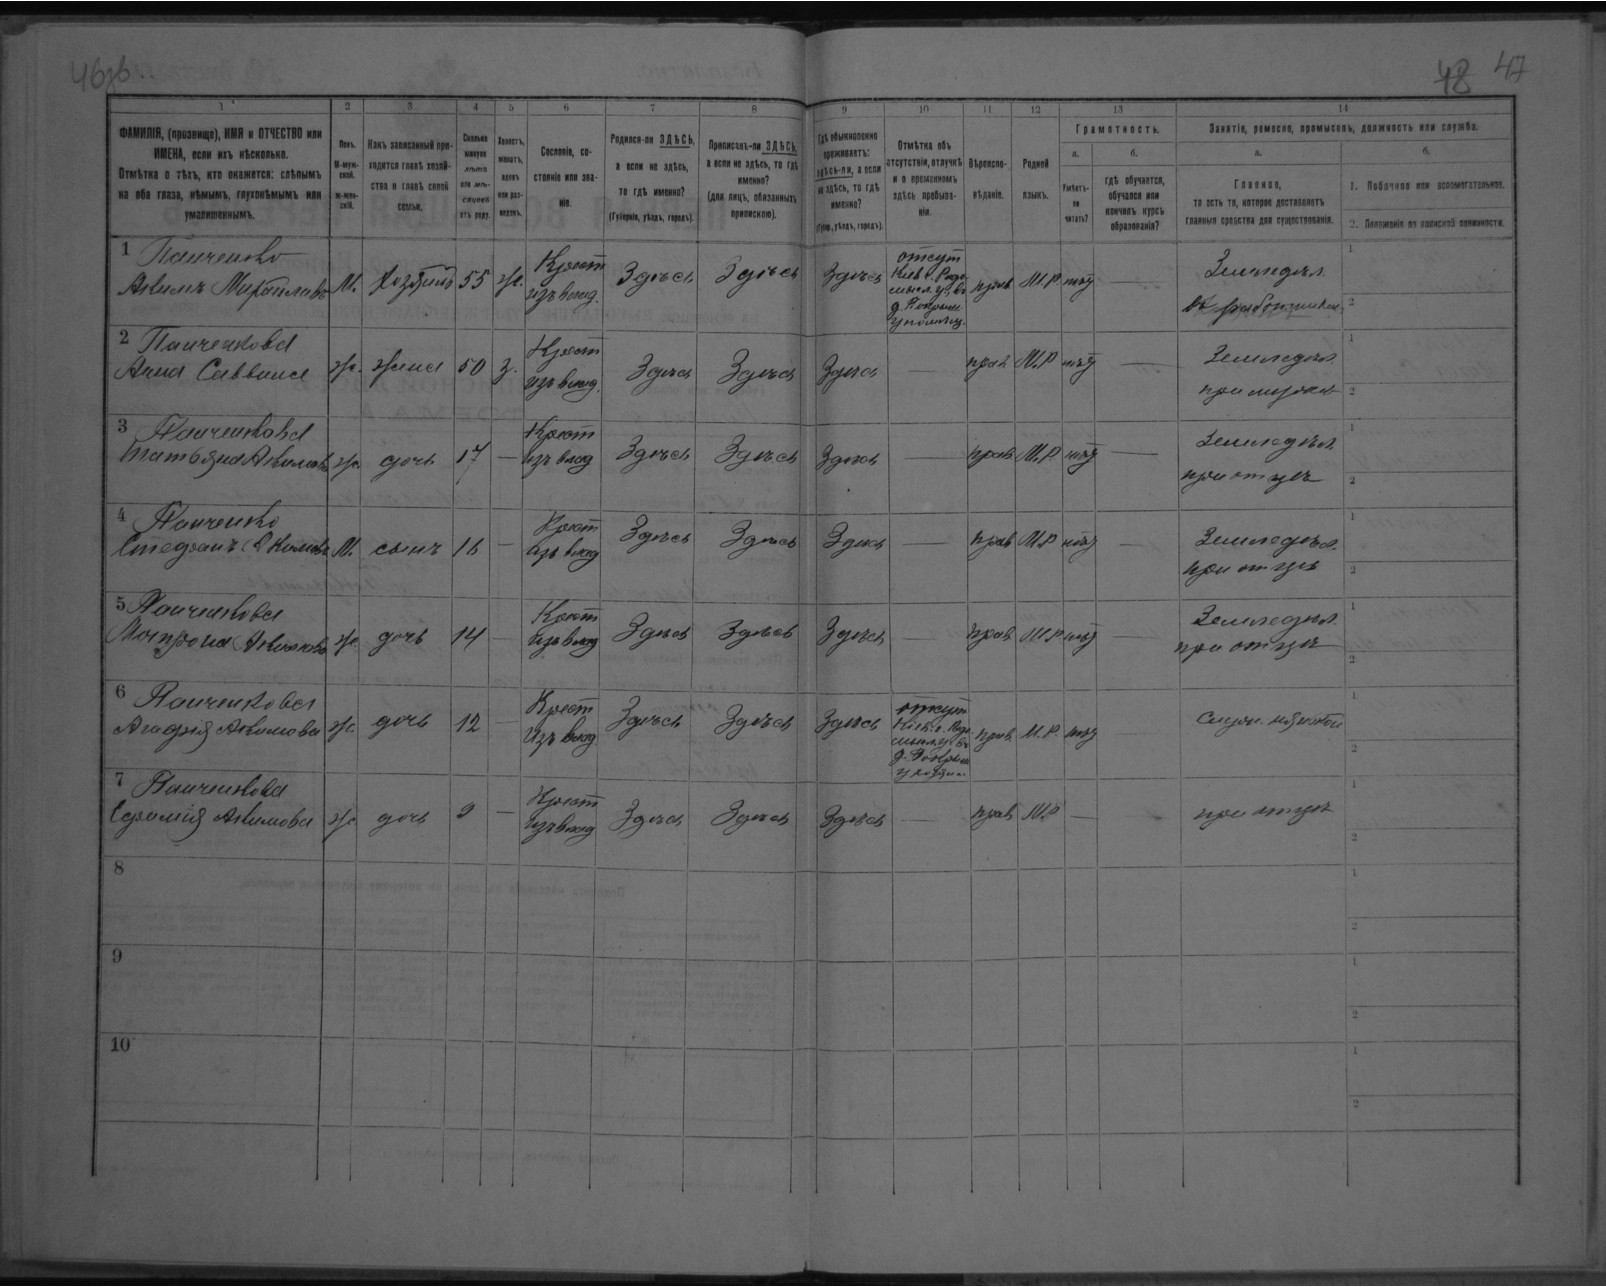 46об.
48 47
1 2 3 4 5 6 7 8 9 10 11 12 13 14
ФАМИЛІЯ, (прозвище), ИМЯ и ОТЧЕСТВО или
ИМЕНА, если ихъ нѣсколько.
Отмѣтка о тѣхъ, кто окажется: слѣпымъ
на оба глаза, нѣмымъ, глухонѣмымъ или
умалишеннымъ.
Полъ.
М-муж-
ской.
Ж-жен-
скій.
Какъ записанный при-
ходится главѣ хозяй-
ства и главѣ своей
семьи.
Сколько
минуло
лѣтъ
или мѣ-
сяцевъ
отъ роду.
Холостъ,
женатъ,
вдовъ
или раз-
веденъ.
Сословіе, со-
стояніе или зва-
ніе.
Родился-ли ЗДѢСЬ,
а если не здѣсь,
то гдѣ именно?
(Губернія, уѣздъ, городъ).
Приписанъ-ли ЗДѢСЬ,
а если не здѣсь, то гдѣ
именно?
(для лицъ, обязанныхъ
припискою).
Гдѣ обыкновенно
проживаетъ:
здѣсь-ли, а если
не здѣсь, то гдѣ
именно?
(Губер., уѣздъ, городъ).
Отмѣтка объ
отсутствіи, отлучкѣ
и о временномъ
здѣсь пребыва-
ніи.
Вѣроиспо-
вѣданіе.
Родной
языкъ.
Грамотность.
а.
Умѣетъ-
ли
читать?
б.
гдѣ обучается,
обучался или
кончилъ курсъ
образованія?
Занятіе, ремесло, промыселъ, должность или служба.
а.
Главное,
то есть то, которое доставляетъ
главныя средства для существованія.
б.
1. Побочное или вспомогательное.
2. Положеніе по воинской повинности.
1 Панченко
Акимъ Михайловъ М. Хозяинъ 55 ж. Крест изъ влад. Здѣсь Здѣсь Здѣсь
отсут
прав М.Р. нѣт — Земледѣл.
1
2
2 Панченкова
Анна Саввина ж. жена 50 з. Крест изъ влад. Здѣсь Здѣсь Здѣсь — прав М.Р нѣт — Земледѣл
при мужѣ
1
2
3 Панченкова
Татьяна Акимова ж. дочь 17 — Крест изъ влад Здѣсь Здѣсь Здѣсь — прав М.Р нѣт — Земледѣл.
при отцѣ
1
2
4 Панченко
Стефанъ Акимовъ М. сынъ 16 — Крест изъ влад Здѣсь Здѣсь Здѣсь — прав М.Р нѣт — Земледѣл.
при отцѣ
1
2
5 Панченкова
Матрона Акимова ж. дочь 14 — Крест изъ влад Здѣсь Здѣсь Здѣсь — прав М.Р нѣт — Земледѣл.
при отцѣ
1
2
6 Панченкова
Агафія Акимова ж. дочь 12 — Крест изъ влад Здѣсь Здѣсь Здѣсь
отсут
прав. М.Р. нѣт
1
2
7 Панченкова
Акимова ж. дочь 9 — Крест изъ влад Здѣсь Здѣсь Здѣсь — прав М.Р — при отцѣ
1
2
8
1
2
9
1
2
10
1
2